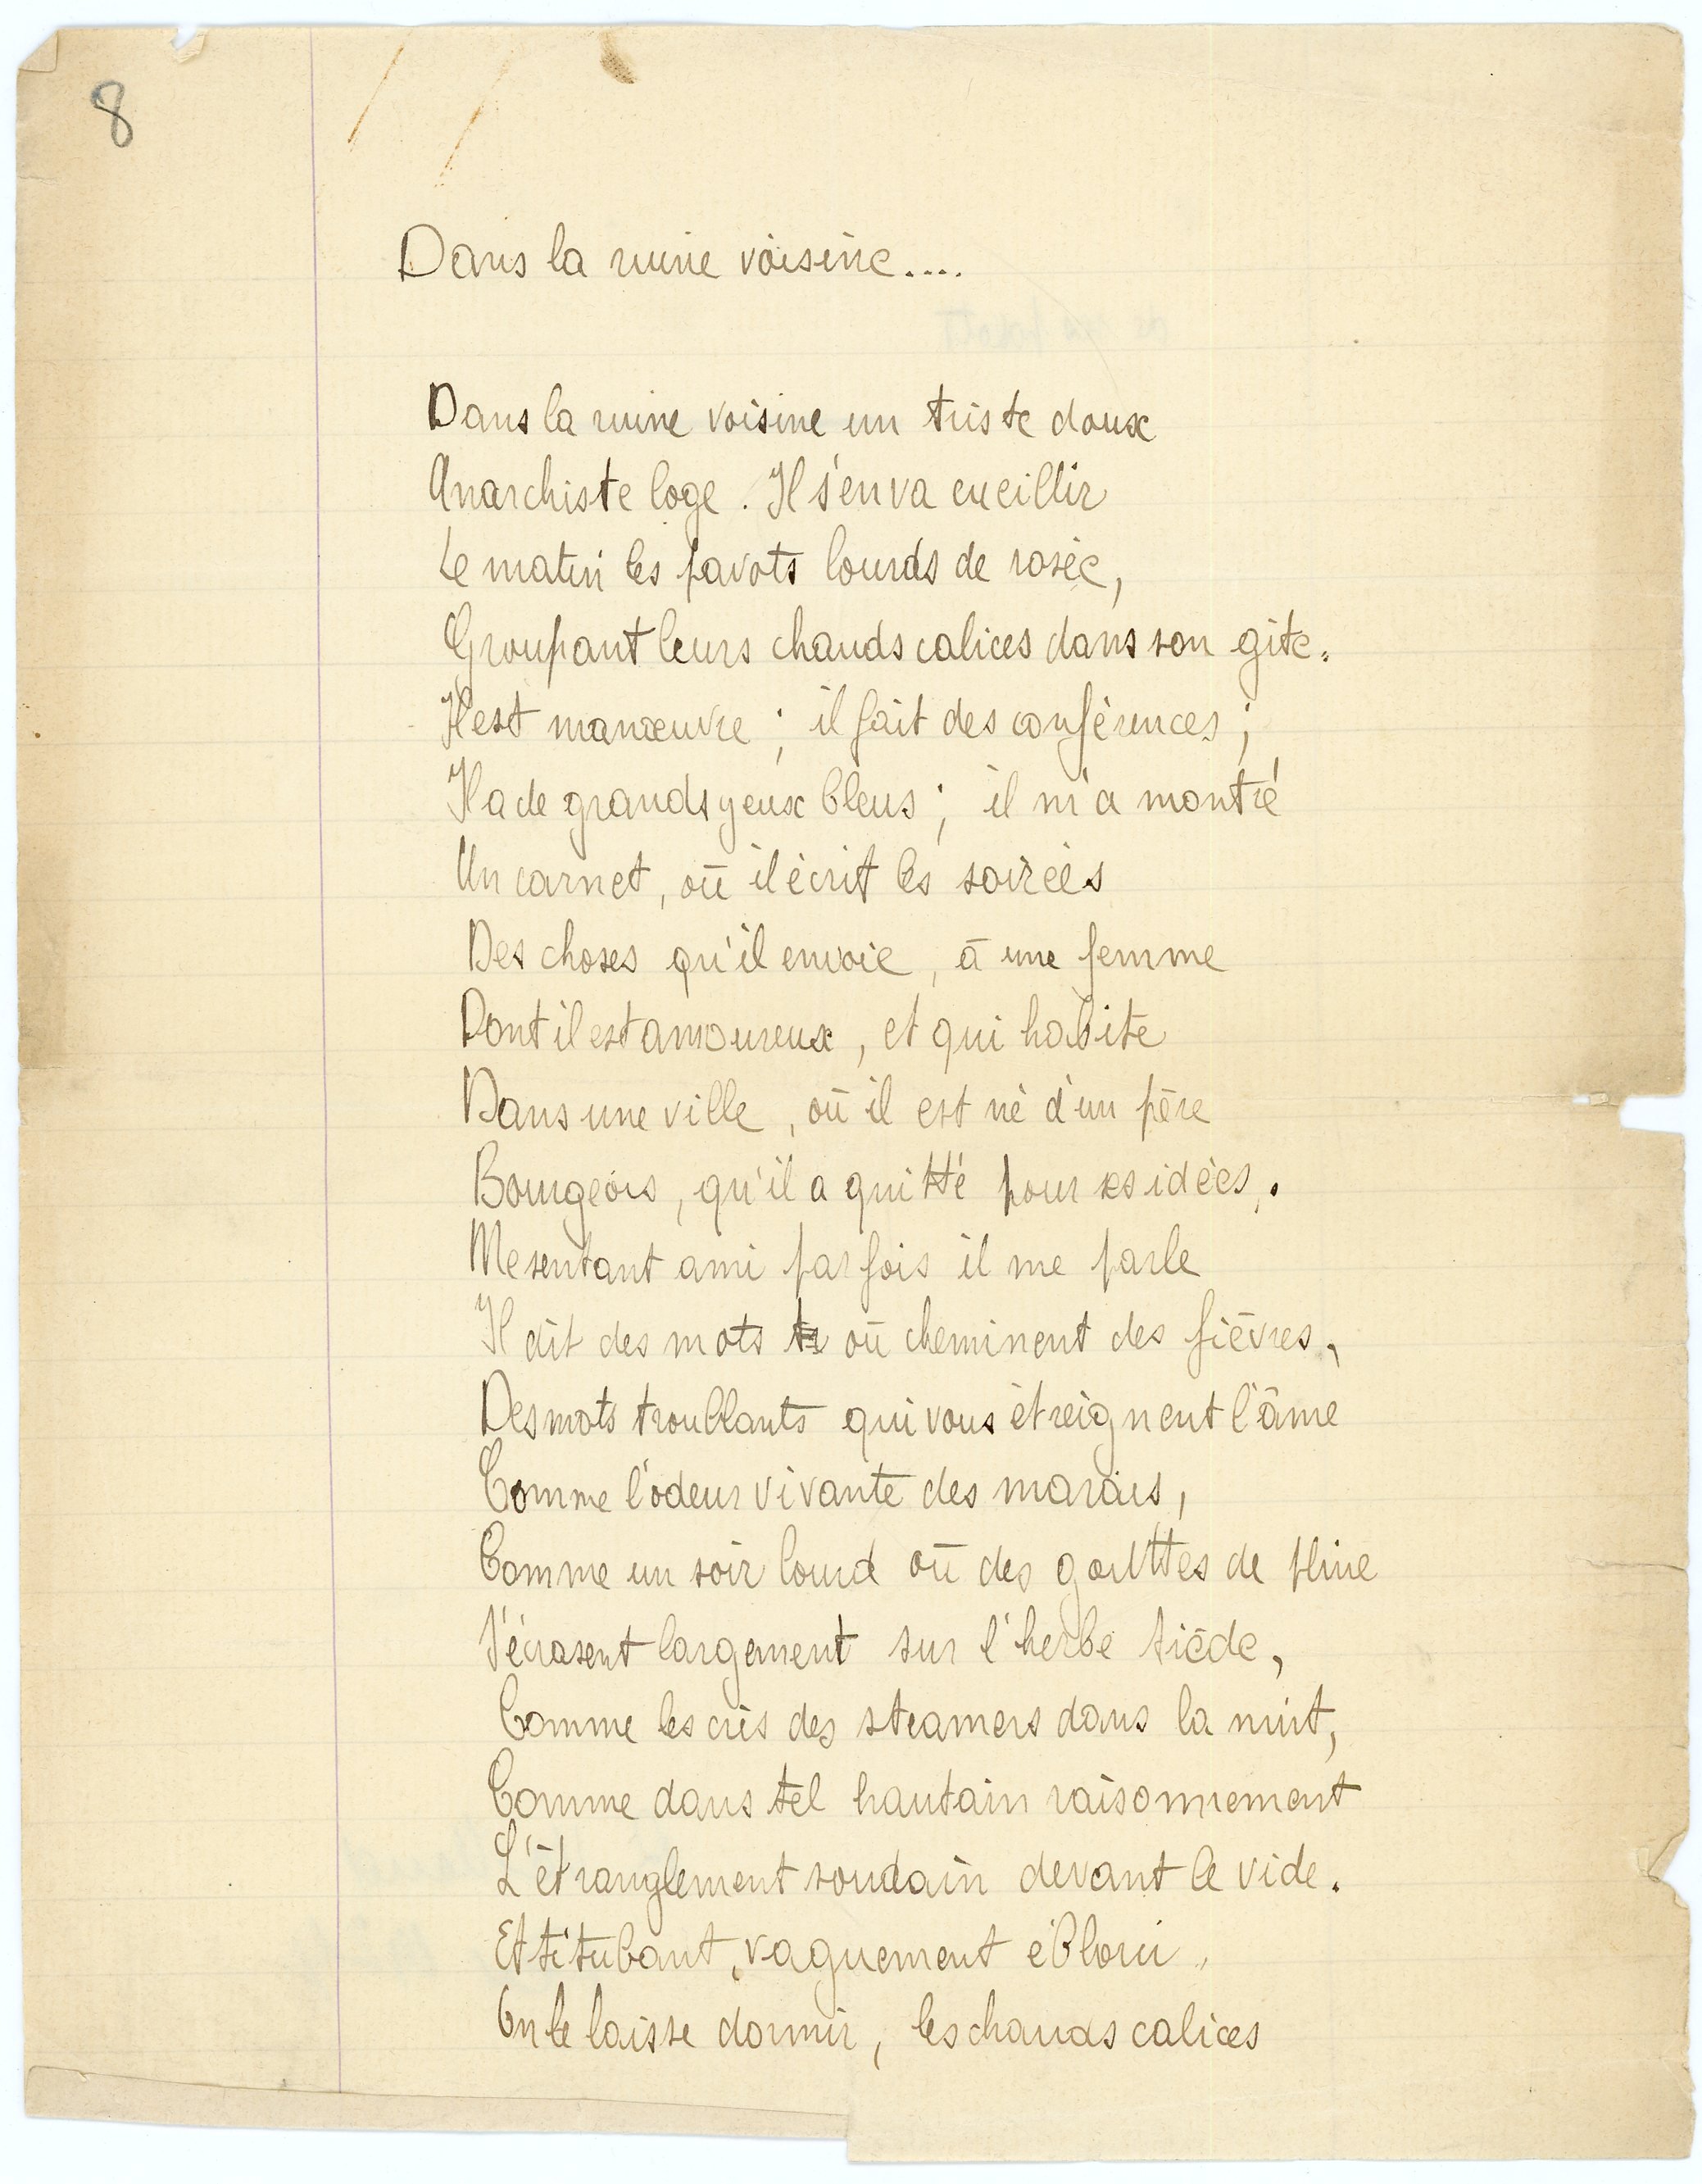 8
Dans la ruine voisine....
Dans la ruine voisine un triste doux
Anarchiste loge. Il s'en va cueillir
Le matin les pavots lourds de rosée,
Groupant leurs chauds calices dans son gite.
Il est manœuvre ; il fait des conférences ;
Il a de grands yeux bleus ; il m'a montré
Un carnet, où il écrit les soirées
Des choses qu'il envoie, à une femme
Dont il est amoureux, et qui habite
Dans une ville, où il est né d'un père
Bourgeois, qu'il a quitté pour ses idées.
Me sentant ami parfois il me parle
Il dit des mots où cheminent des fièvres,
Des mots troublants qui vous étreignent l'âme
Comme l'odeur vivante des marais,
Comme un soir lourd où des gouttes de pluie
S'écrasent largement sur l'herbe tiède,
Comme les cris des steamers dans la nuit,
Comme dans tel hautain raisonnement
L'étranglement soudain devant le vide.
Et titubant, vaguement ébloui,
On le laisse dormir, les chauds calices